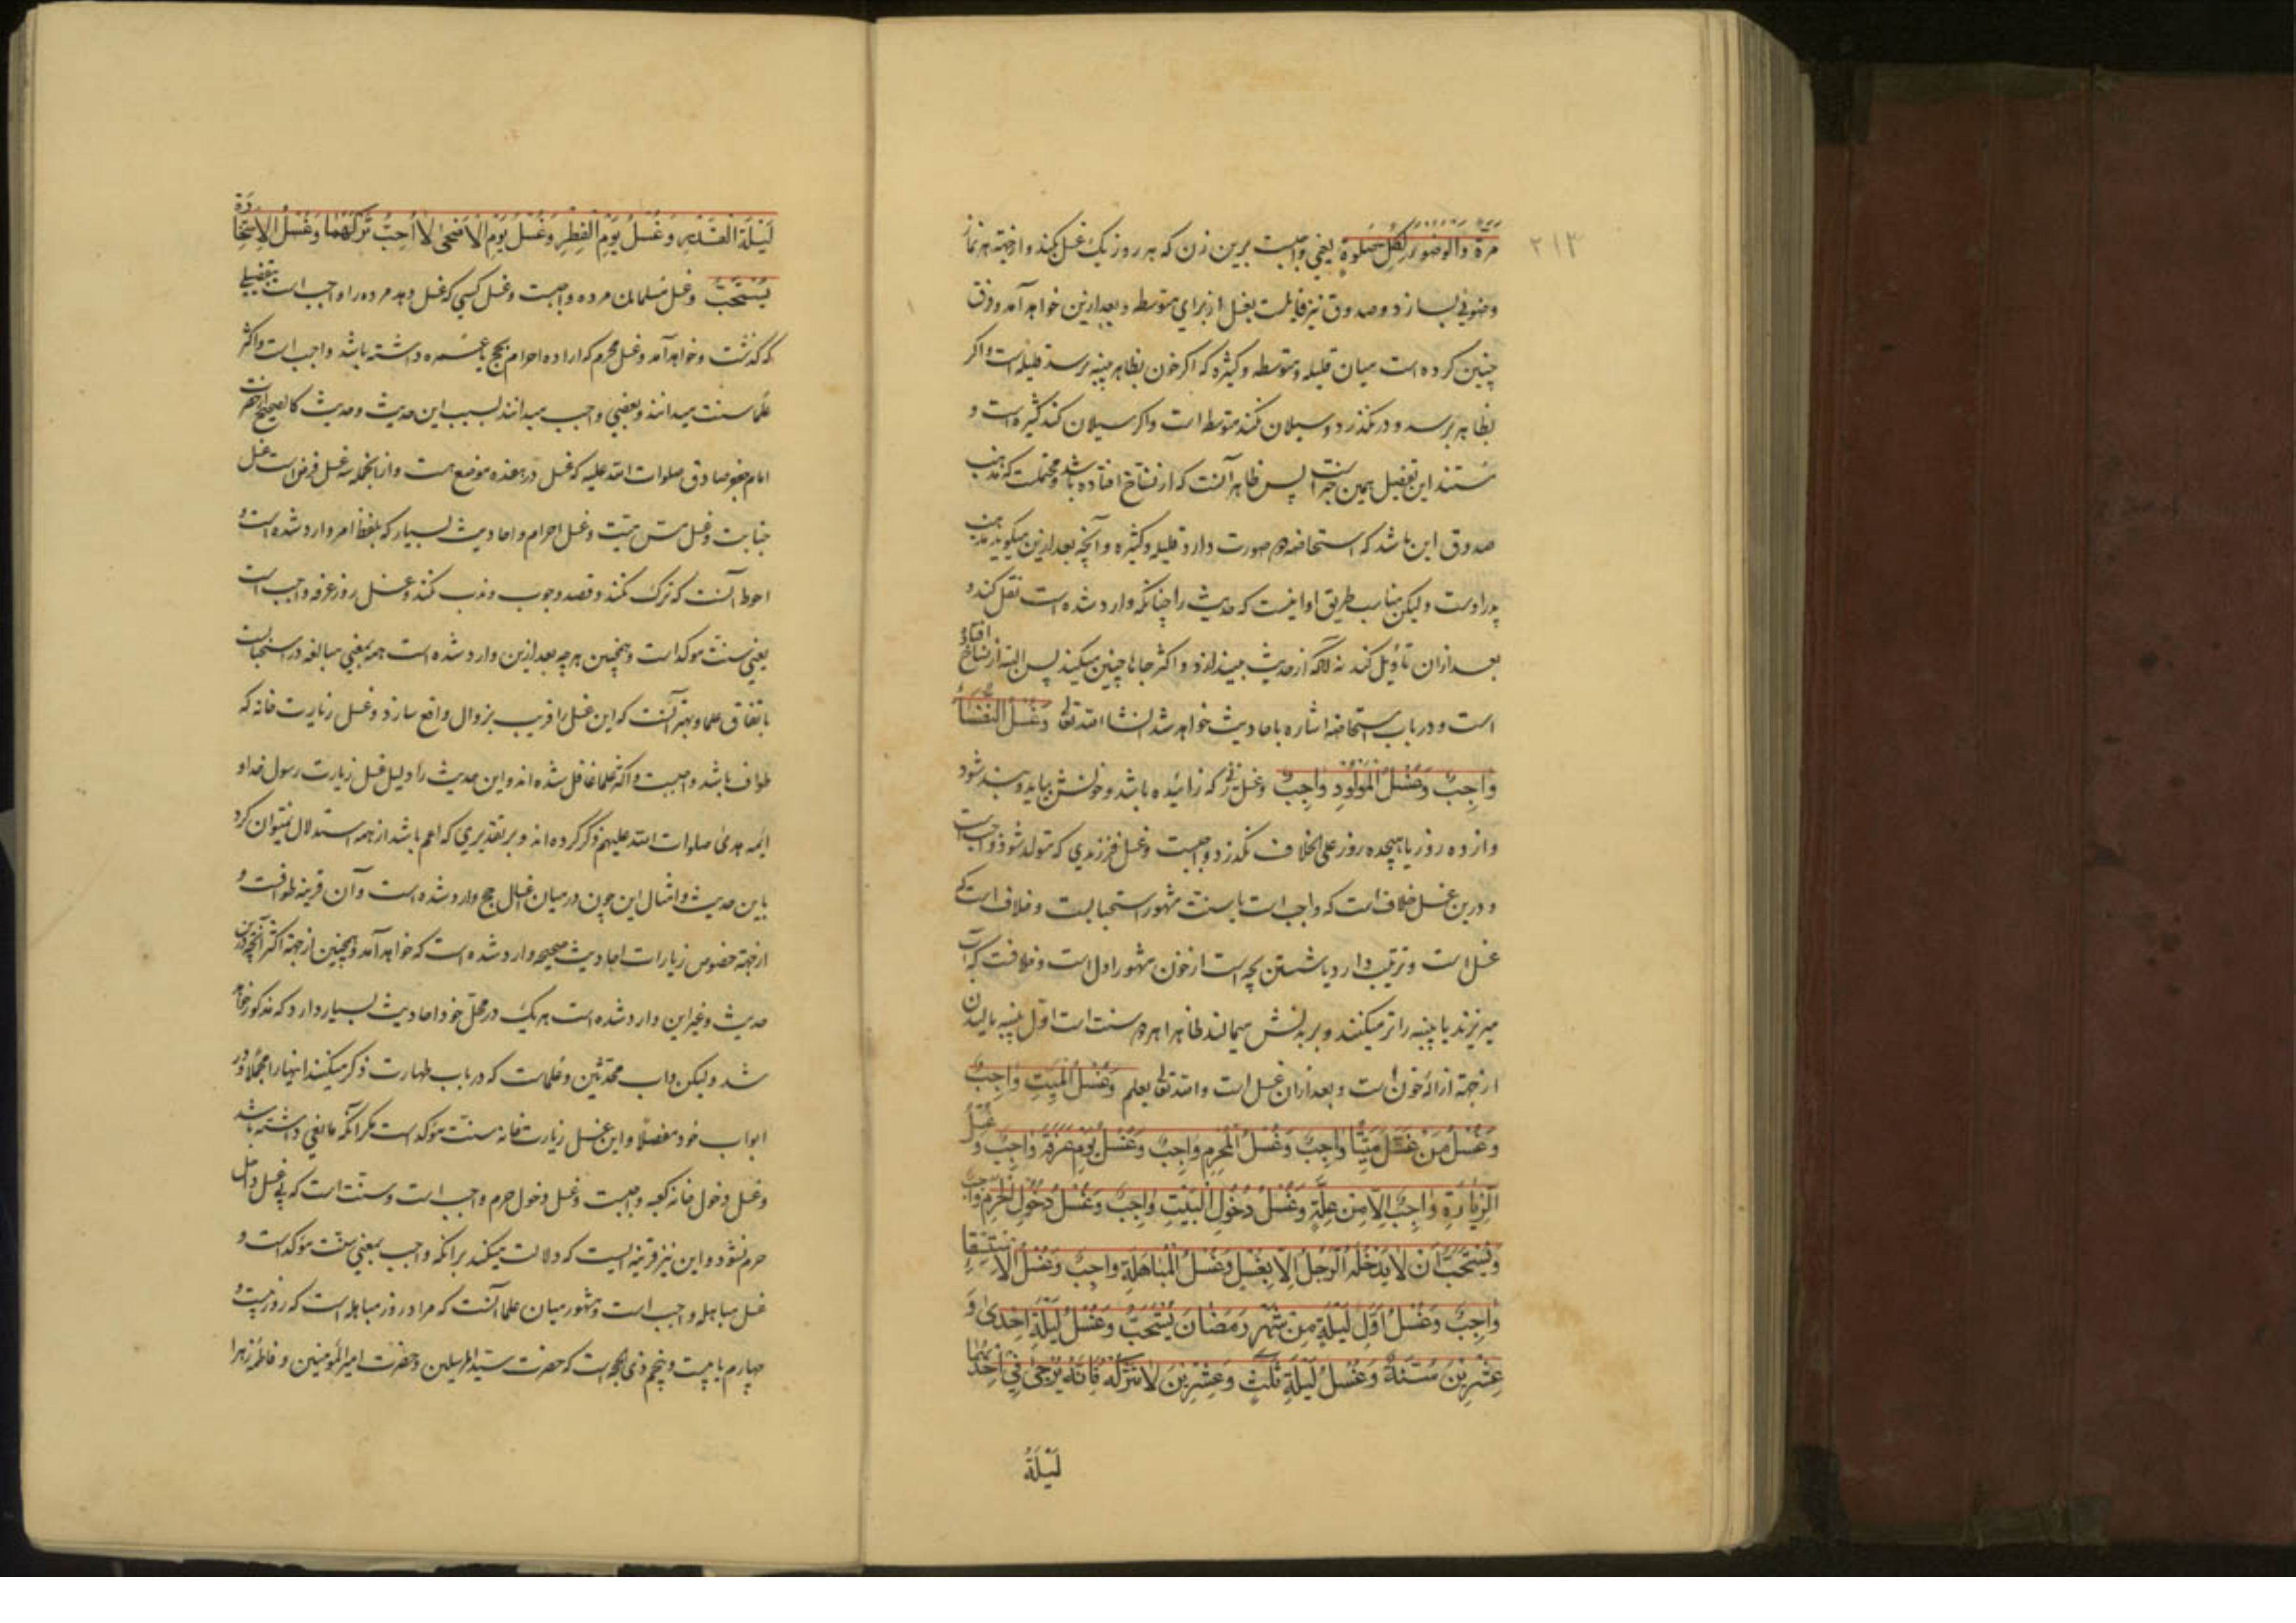 ۲۱۳
مَرَّةً وَالْوُضُوءُ لِكُلِّ صَلٰوةٍ یعنی واجبست برین زن که هر روز یک غسل بکند و از جهة هر نماز
وضوئی بسازد و صدوق نیز قایلست بغسل از برای متوسطه و بعد ازین خواهد آمد و فرق
چنین کرده است میان قلیله و متوسطه و کثیره که اکر خون بظاهر پنبه نرسد قلیله است و اکر
بظاهر برسد و در نکذرد و سیلان نکند متوسط است و اکر سیلان کند کثیره است و
مستند این تفصیل همین خبر است پس ظاهر آنست که از نساخ افتاده باشد و محتملست که مذهب
صدوق این باشد که استحاضه دو صورت دارد قلیله و کثیره و آنچه بعد ازین میکوید مذهب
پدر اوست و لیکن مناسب طریق او اینست که حدیث را چنانکه وارد شده است نقل کند و
بعد از ان تأویل کند نه آنکه از حدیث بیندازد و اکثر جاها چنین میکند پس البته از نساخ افتاده
است و در باب استحاضه اشاره باحادیث خواهد شد انشاالله تعالی وَغُسْلُ النُّفَسَاءِ
وَاجِبٌ وَغُسْلُ الْمَوْلُودِ وَاجِبٌ و غسل زنی که زائیده باشد و خونش بیاید و بند شود
و از ده روز یا هیجده روز علی الخلاف نکذرد واجبست و غسل فرزندی که متولد شود واجب است
و درین غسل خلاف است که واجب است یا سنت مشهور استحبابست و خلاف است که
غسل است و ترتیب دارد یا شستن بچه است از خون مشهور اول است و خلافست که آب
میریزند یا پنبه را تر میکنند و بر بدنش میمالند ظاهرا هر دو سنت است اول پنبه مالیدن
از جهة ازالهٔ خون است و بعد از ان غسل است والله تعالی یعلم وَغُسْلُ الْمَيِّتِ وَاجِبٌ
وَغُسْلُ مَنْ غَسَّلَ مَيِّتًا وَاجِبٌ وَغُسْلُ الْمُحْرِمِ وَاجِبٌ وَغُسْلُ يَوْمِ عَرَفَةَ وَاجِبٌ وَغُسْلُ
الزِّيَارَةِ وَاجِبٌ اِلَّا مِنْ عِلَّةٍ وَغُسْلُ دُخُولِ الْبَيْتِ وَاجِبٌ وَغُسْلُ دُخُولِ الْحَرَمِ وَاجِبٌ
وَيُسْتَحَبُّ اَنْ لَا يَدْخُلَهُ الرَّجُلُ اِلَّا بِغُسْلٍ وَغُسْلُ الْمُبَاهَلَةِ وَاجِبٌ وَغُسْلُ الْاِسْتِسْقَاءِ
وَاجِبٌ وَغُسْلُ اَوَّلِ لَيْلَةٍ مِنْ شَهْرِ رَمَضَانَ يُسْتَحَبُّ وَغُسْلُ لَيْلَةِ اِحْدٰى وَ
عِشْرِينَ سُنَّةٌ وَغُسْلُ لَيْلَةِ ثَلٰثٍ وَعِشْرِينَ لَا تَتْرُكْهُ فَاِنَّهُ يُرْجٰى فِي اِحْدٰيهُمَا
لَيْلَةُ
لَيْلَةُ الْقَدْرِ وَغُسْلُ يَوْمِ الْفِطْرِ وَغُسْلُ يَوْمِ الْاَضْحٰى لَا اُحِبُّ تَرْكَهُمَا وَغُسْلُ الْاِسْتِخَارَةِ
يُسْتَحَبُّ و غسل مسلمانان مرده واجبست و غسل کسی که غسل دهد مرده را واجب است بتفصیلی
که کذشت و خواهد آمد و غسل محرم که اراده احرام بحج یا عمره داشته باشد واجب است و اکثر
علما سنت میدانند و بعضی واجب میدانند بسبب این حدیث و حدیث کالصحیح از حضرت
امام جعفر صادق صلوات الله علیه که غسل در هفده موضع هست و از آنجمله سه غسل فرض است غسل
جنابت و غسل مس میت و غسل احرام و احادیث بسیار که بلفظ امر وارد شده است و
احوط آنست که ترک نکند و قصد وجوب و ندب نکند و غسل روز عرفه واجب است
یعنی سنت موکد است و همچنین هر چه بعد ازین وارد شده است همه بمعنی مبالغه در استحبابست
باتفاق علما و بهتر آنست که این غسل را قریب بزوال واقع سازد و غسل زیارت خانه که
طواف باشد واجبست و اکثر علما غافل شده اند و این حدیث را دلیل غسل زیارت رسول خدا و
ایمه هدی صلوات الله علیهم ذکر کرده اند و بر تقدیری که اعم باشد از همه استدلال نمیتوان کرد
باین حدیث و امثال این چون در میان اغسال حج وارد شده است و آن قرینه طوافست و
از جهة خصوص زیارات احادیث صحیحه وارد شده است که خواهد آمد و همچنین از جهة اکثر آنچه درین
حدیث و غیر این وارد شده است هر یک در محل خود احادیث بسیار دارد که مذکور خواهد
شد و لیکن داب محدثین و علماست که در باب طهارت ذکر میکنند اینها را مجملا و در
ابواب خود مفصلا و این غسل زیارت خانه سنت موکد است مکر آنکه مانعی داشته باشد
و غسل دخول خانه کعبه واجبست و غسل دخول حرم واجب است و سنت است که بی غسل داخل
حرم نشود و این نیز قرینه ایست که دلالت میکند بر آنکه واجب بمعنی سنت موکد است و
غسل مباهله واجب است و مشهور میان علما آنست که مراد روز مباهله است که روز بیست و
چهارم یا بیست و پنجم ذی الحجه است که حضرت سید المرسلین و حضرت امیر المؤمنین و فاطمه زهرا